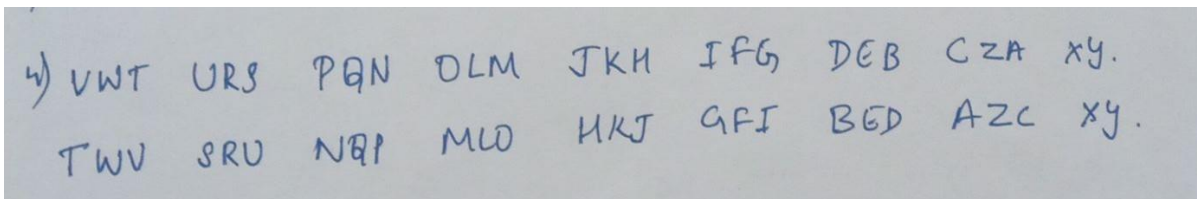 4) VWT URS PQN OLM JKH IFG DEB CZA XY.
TWV SRU NQP MLO HKJ GFI BED AZC XY.